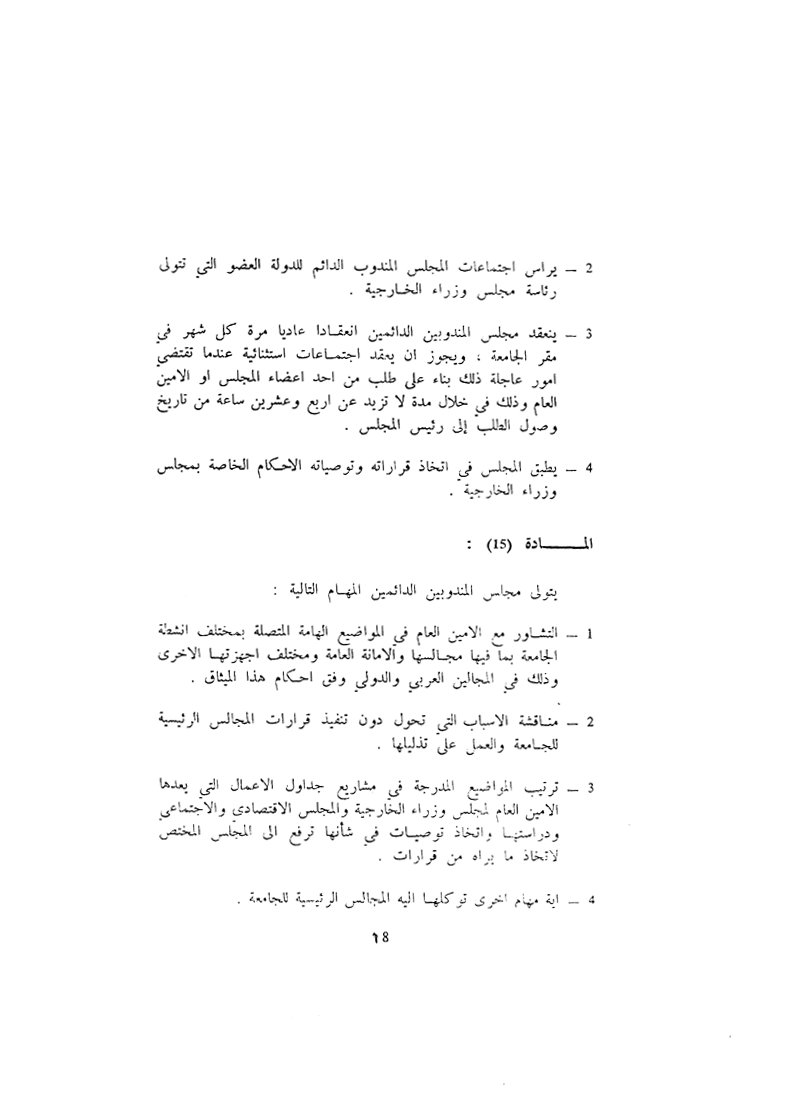 2 – يراس اجتماعات المجلس المندوب الدائم للدولة العضو التي تتولى
رئاسة مجلس وزراء الخارجية .
3 – ينعقد مجلس المندوبين الدائمين انعقادا عاديا مرة كل شهر في
مقر الجامعة ، ويجوز ان يعقد اجتماعات استثنائية عندما تقتضي
امور عاجلة ذلك بناء على طلب من احد اعضاء المجلس او الامين
العام وذلك في خلال مدة لا تزيد عن اربع وعشرين ساعة من تاريخ
وصول الطلب إلى رئيس المجلس .
4 – يطبق المجلس في اتخاذ قراراته وتوصياته الاحكام الخاصة بمجلس
وزراء الخارجية .
المــــادة (15) :
يتولى مجلس المندوبين الدائمين المهام التالية :
1 – التشاور مع الامين العام في المواضيع الهامة المتصلة بمختلف انشطة
الجامعة بما فيها مجالسها والامانة العامة ومختلف اجهزتها الاخرى
وذلك في المجالين العربي والدولي وفق احكام هذا الميثاق .
2 – مناقشة الاسباب التي تحول دون تنفيذ قرارات المجالس الرئيسية
للجامعة والعمل على تذليلها .
3 – ترتيب المواضيع المدرجة في مشاريع جداول الاعمال التي يعدها
الامين العام لمجلس وزراء الخارجية والمجلس الاقتصادي والاجتماعي
ودراستها واتخاذ توصيات في شأنها ترفع الى المجلس المختص
لاتخاذ ما يراه من قرارات .
4 – اية مهام اخرى توكلها اليه المجالس الرئيسية للجامعة .
18